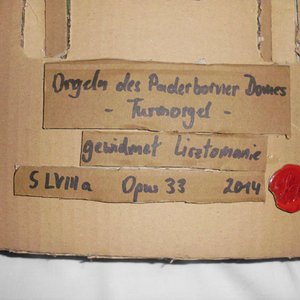 Orgeln des Paderborner Domes
- Turmorgel -
gewidmet Lisztomanie
S LVIII a Opus 33 2014